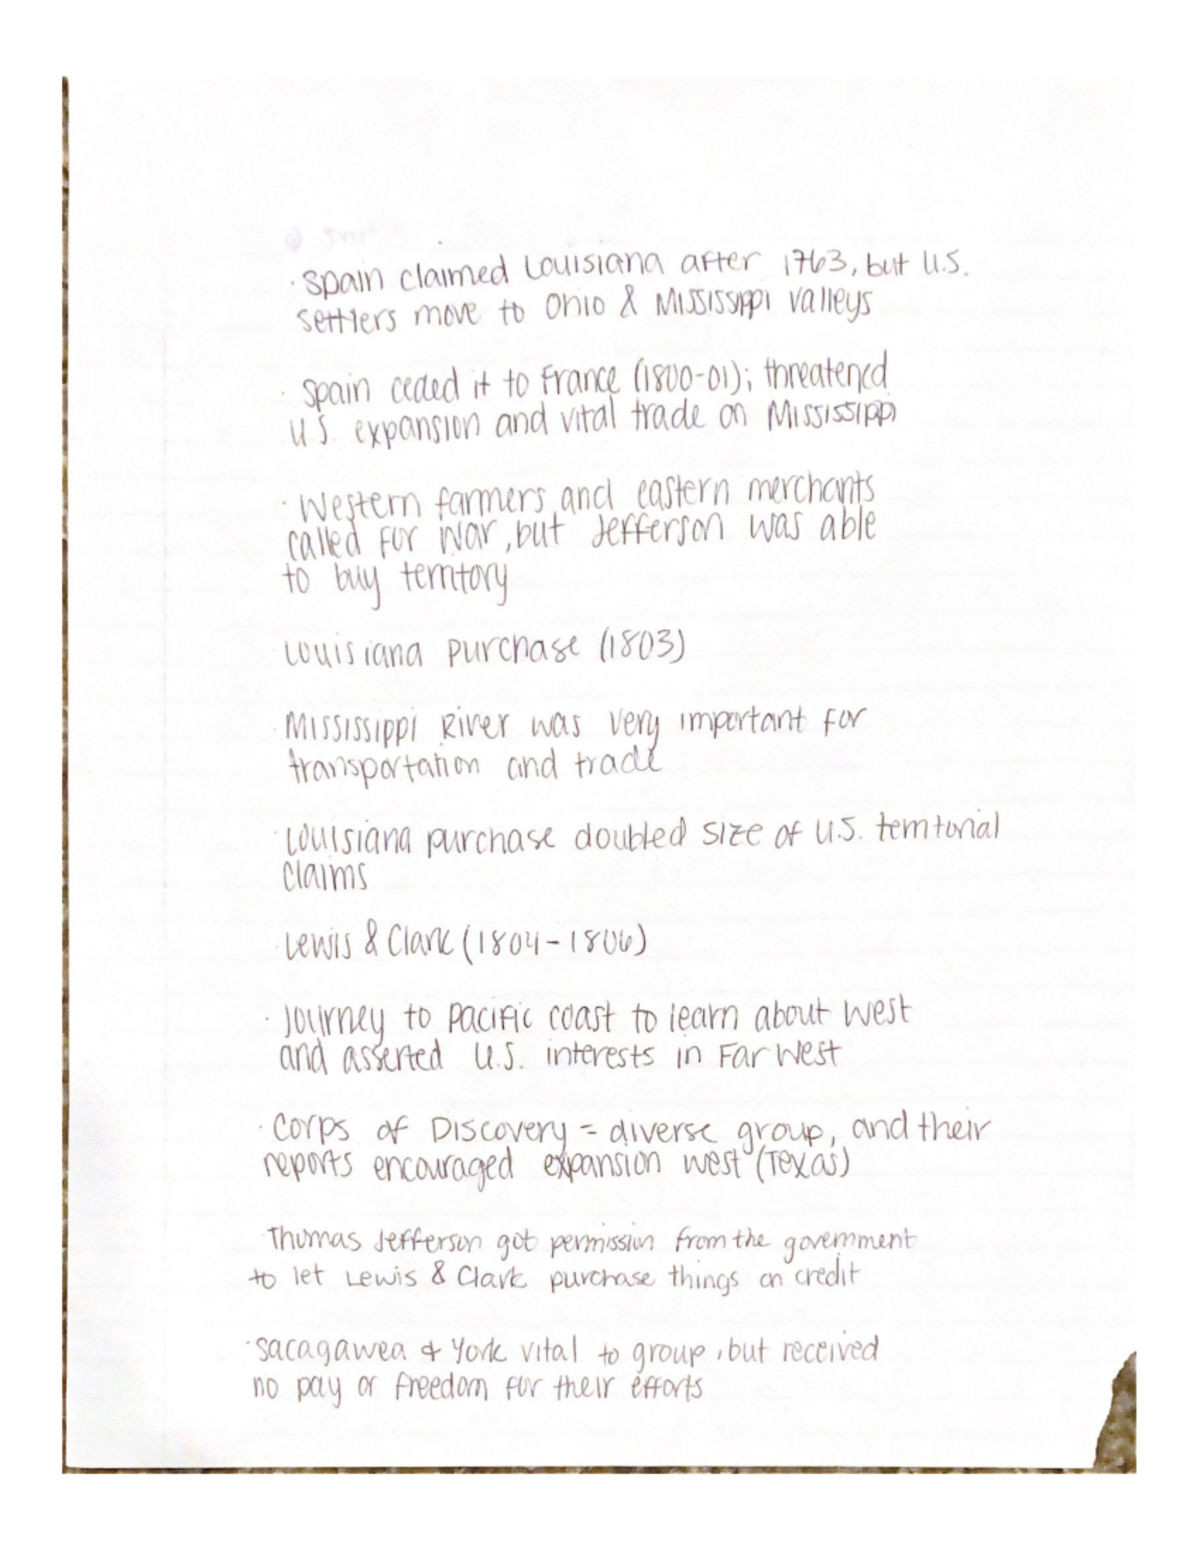 · Spain claimed Louisiana after 1763, but U.S.
settlers move to Ohio & Mississippi valleys
· Spain ceded it to France (1800-01); threatened
U.S. expansion and vital trade on Mississippi
· Western farmers and eastern merchants
called for war, but Jefferson was able
to buy territory
Louisiana purchase (1803)
Mississippi River was very important for
transportation and trade
· Louisiana purchase doubled size of U.S. territorial
claims
· Lewis & Clark (1804-1806)
· Journey to Pacific coast to learn about west
and asserted U.S. interests in Far West
· Corps of Discovery = diverse group, and their
reports encouraged expansion west (Texas)
Thomas Jefferson got permission from the government
to let Lewis & Clark purchase things on credit
· Sacagawea & York vital to group, but received
no pay or freedom for their efforts